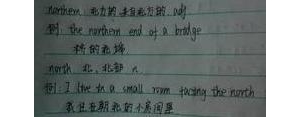 northern 北方的 来自北方的 adj
例: the northern end of a bridge
桥的北端
north 北, 北部 n.
例: I live in a small room facing the north
我住在朝北的小房间里